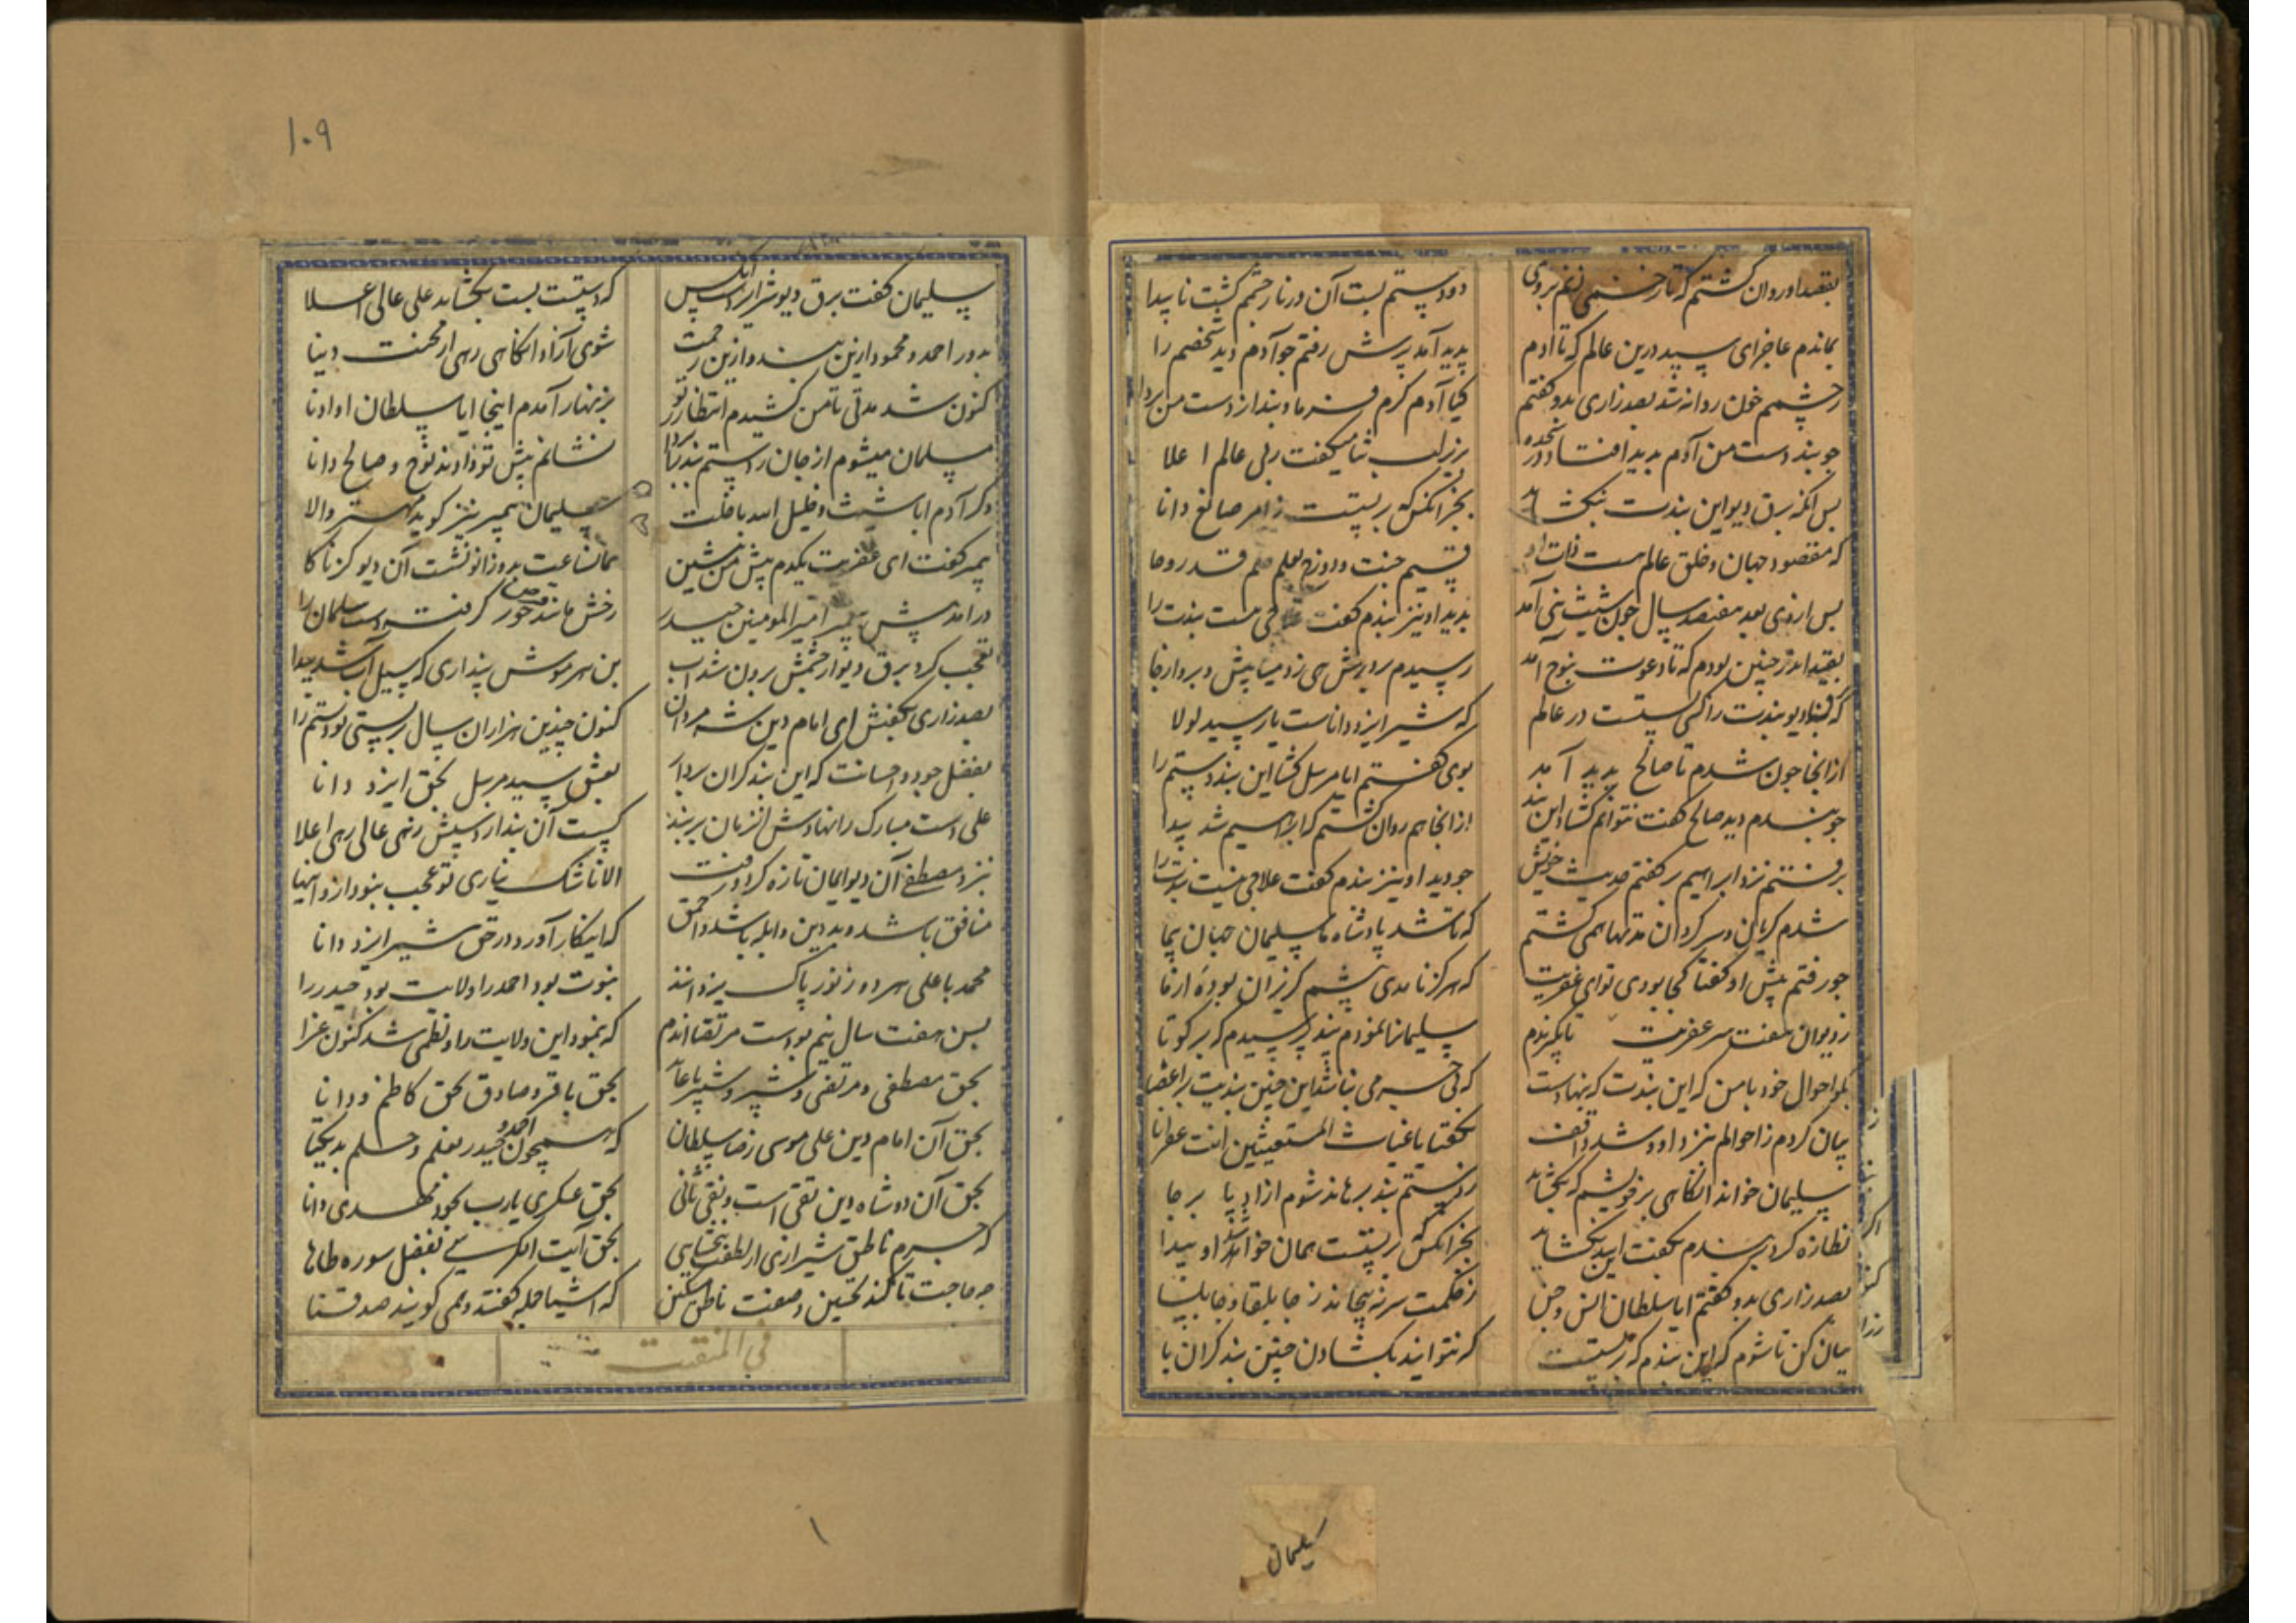 بقصد او روان گشتم که تا زخمی زنم بر وی
دو دستم بست آن و زنار چشمم گشت ناپیدا
بماندم عاجز ای سید درین عالم که تا آدم
پدید آمد برش رفتم جو آدم دید شخصم را
ز چشمم خون روانه شد بصد زاری بدو گفتم
کیا آدم کرم فرما و بند از دست من بردا
جو بند دست من آدم بدید افتاد در سجده
بزیر لب ثنا میگفت ربی عالم اعلا
بس آنکه برق دیو این بندت نبکشاید
بجز آنکس که بربستت ز امر صانع دانا
که مقصود جهان و خلق عالم هست ذات او
قسیم جنت و دوزخ
بس از وی بعد هفتصد سال جون شیث نبی آمد
بدید او نیز بندم گفت هست بندت را
بقید اندر جنین بودم که تا دعوت بنوح آمد
رسیدم بر درش
که دیو بندت را کسی بستت در عالم
که شیر ایزد داناست یار سید لولا
از آنجا جون شدم تا صالح پدید آمد
بوی گفتم ایا مرسل کشا این بند دستم را
جو بندم دید صالح گفت نتوانم کشاد این بند
از آنجا هم روان گشتم که ابراهیم شد پیدا
برفتم نزد ابراهیم بر گفتم حدیث خویش
جو دید او نیز بندم گفت علاجی نیست بندت را
شدم گریان و سرگردان مدتها همی گشتم
که تا شد پادشاه ما سلیمان جهان پیما
جو رفتم پیش او گفتا کجا بودی تو ای عفریت
که هرگز نامدی پیشم گریزان بوده از ما
ز دیوان هفت سر عفریت
سلیمانرا نمودم بند پرسیدم که برگو تا
بگو احوال خود با من که این بندت که بنهادست
که بی جرمی نباشد این جنین بندیت بر اعضا
بیان کردم ز احوالم بنزد او و شد واقف
بگفتا یا غیاث المستغیثین انت غفرانا
سلیمان خواند آنگاهی بر خویشم که بکشاید
ز دستم بند برهاند شوم آزاد پا برجا
نظاره کرد بر بندم بگفت این بند بکشاید
بجز آنکس که بربستت همان خواهد شد او پیدا
بصد زاری بدو گفتم ایا سلطان انس و جن
ز حکمت سر نپیچاند ز جابلقا و جابلسا
بیان کن تا شوم که این بندم که بربستت
که نتوانند بکشادن جنین بند گران با
سلیمان گفت برق دیو شیر ایزد است آنکس
که دستت بست بکشاید علی عالی اعلا
بدور احمد و محمود ازین بند و ازین زحمت
شوی آزاد آنگاهی رهی از محنت دنیا
کنون شد مدتی تا من کشیدم انتظار تو
بزنهار آمدم اینجا ایا سلطان او ادنا
مسلمان میشوم از جان ز دستم بند بردار
نشانم پیش تو دادند نوح و صالح دانا
دگر آدم ابا شیث و خلیل الله با ملت
سلیمان پیمبر نیز گوید مهتر والا
پیمبر گفت ای عفریت یکدم پیش من بنشین
همان ساعت بدو زانو نشست آن دیو
در آمد پیش پیمبر امیر المومنین حیدر
رخش مانند خور گرفت دست سلمان را
تعجب کرد برق دیو از چشمش برون شد آب
بن هر مویش پنداری که سیل آب شد پیدا
بصد زاری بگفتش ای امام دین شه مردان
کنون چندین هزاران سال بربستی تو دستم را
بفضل جود و احسانت که این بند گران بردار
بعشق سید مرسل بحق ایزد دانا
علی دست مبارک را نهادش آن زمان بر بند
گسست آن بند از دستش زهی عالی رهی اعلا
بنزد مصطفی آن دیو ایمان تازه کرد و رفت
الا تا شک نیاری تو عجب نبود ازو اینها
منافق باشد و بد دین و ابله باشد و احمق
که انکار آورد در حق شیر ایزد دانا
محمد با علی هر دو ز نور پاک یزدانند
نبوت بود احمد را ولایت بود حیدر را
بسن هفت سال نیم بودست مرتضا آندم
که بنمود این ولایت را و نظمی شد کنون غرا
بحق مصطفی و مرتضی و شبر و شبیر با عابد
بحق باقر و صادق بحق کاظم دانا
بحق آن امام دین علی موسی رضا سلطان
که همچون احمد و حیدر بعلم و حلم بد یکتا
بحق آن دو شاه دین تقی است و نقی ثانی
بحق عسکری یارب بجود مهدی دانا
که جرم ناطق شیرازی از لطفت ببخشایی
بحق آیت الکرسی بفضل سوره طاها
چه حاجت تا کند تحسین وصفت ناطق مسکین
که اشیا جمله گفتند و همی گویند صدقنا
في المنقبت
۱۰۹
۱
سلیمان